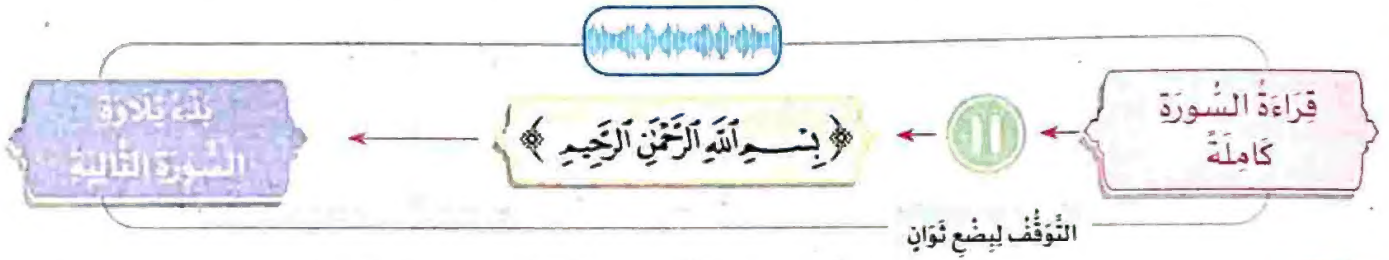 قِرَاءَةُ السُّورَةِ
كَامِلَةً
﴿ بِسْمِ ٱللَّهِ ٱلرَّحْمَٰنِ ٱلرَّحِيمِ ﴾
بَدْءُ تِلَاوَةِ
السُّورَةِ التَّالِيَةِ
التَّوَقُّفُ لِبِضْعِ ثَوَانٍ